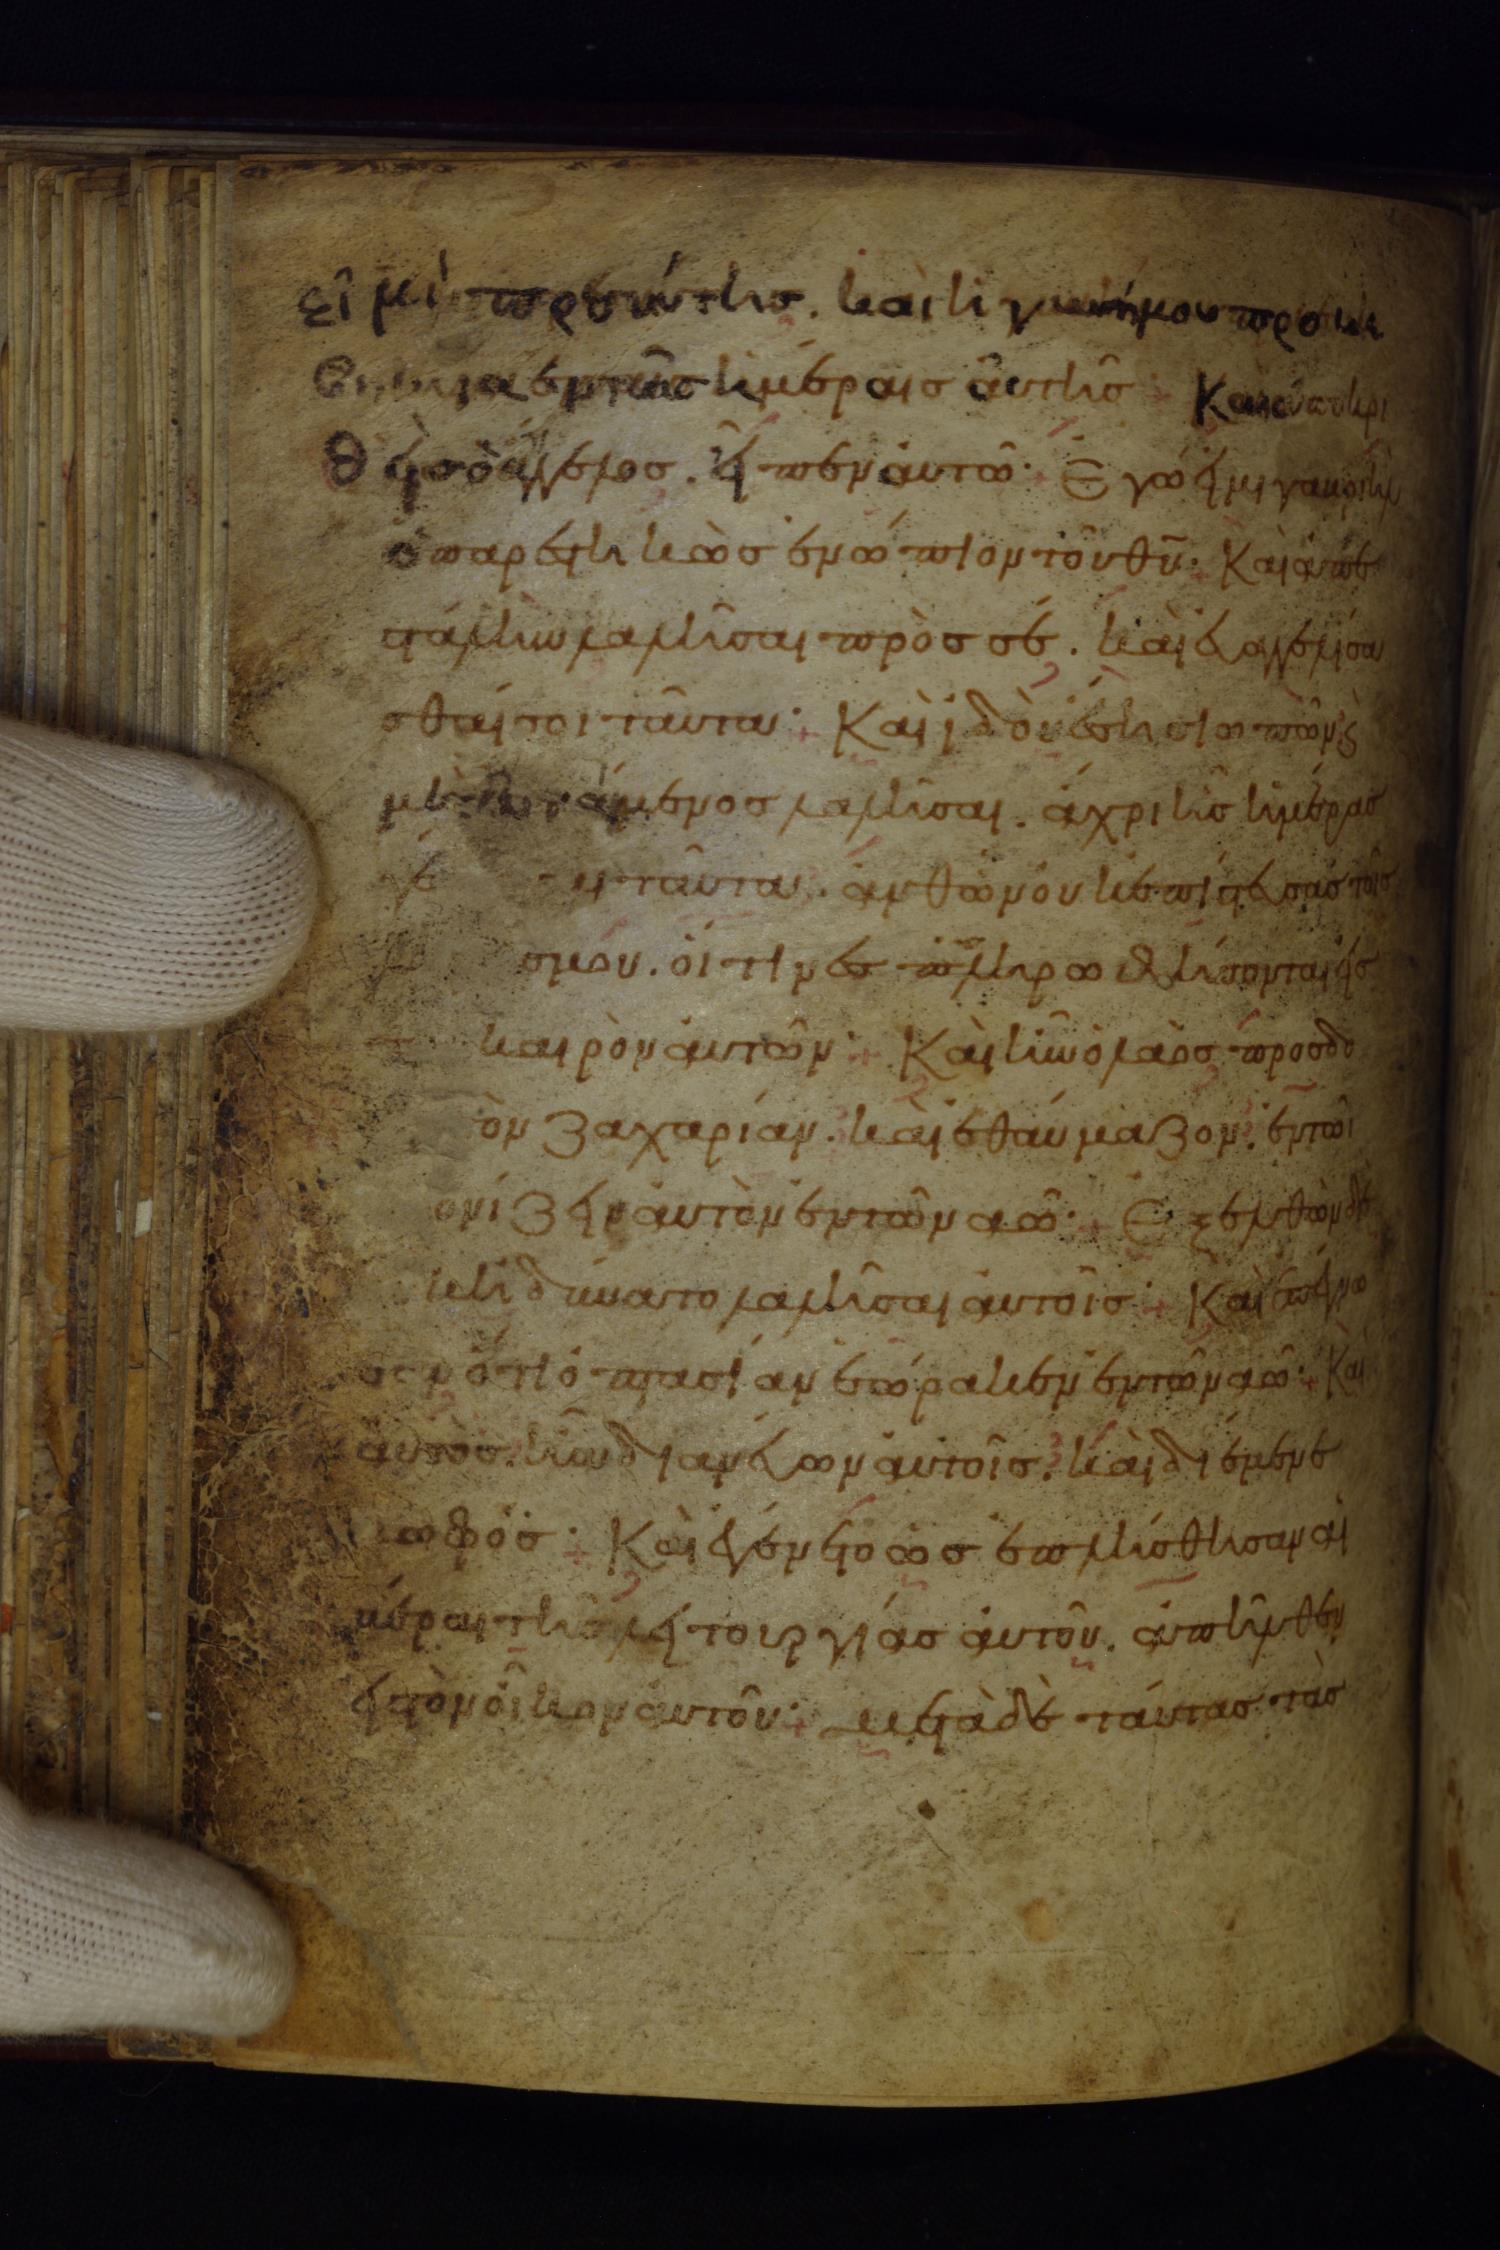 εἰμὶ πρεσβύτης. καὶ ἡ γυνή μου προβε
βηκυῖα ἐν ταῖς ἡμέραις αὐτῆς· Καὶ ἀποκρι
θεὶς ὁ ἄγγελος. εἶπεν αὐτῶ· Ἐγώ εἰμι γαβριὴλ
ὁ παρεστηκὼς ἐνώπιον τοῦ θῦ· Καὶ ἀπε
στάλην λαλῆσαι πρὸς σέ. καὶ εὐαγγελίσα
σθαί σοι ταῦτα· Καὶ ἰδοὺ ἔση σιωπῶν ϗ
μὴ δυνάμενος λαλῆσαι. ἄχρι ἧς ἡμέρας
γέ ται ταῦτα. ἀνθῶν οὐκ ἐπίστευσας τοῖς
σμου. οἵτινες πληρωθήσονται εἰς
καιρὸν αὐτῶν· Καὶ ἦν ὁ λαὸς προσδο
ὸν ζαχαρίαν. καὶ ἐθαύμαζον. ἐν τῶ
ονίζειν αὐτὸν ἐν τῶ ναῶ· Ἐξελθὼν δὲ
κ ἠδύνατο λαλῆσαι αὐτοῖς· Καὶ ἐπέγνω
σαν ὅτι ὀπτασίαν ἑώρακεν ἐν τῶ ναῶ· Καὶ
αὐτὸς. ἦν διανεύων αὐτοῖς. καὶ διέμενε
κωφός· Καὶ ἐγένετο ὡς ἐπλήσθησαν αἱ
μέραι τῆς λειτουργίας αὐτοῦ. ἀπῆλθεν
εἰς τὸν οἶκον αὐτοῦ· Μετὰ δὲ ταύτας τὰς